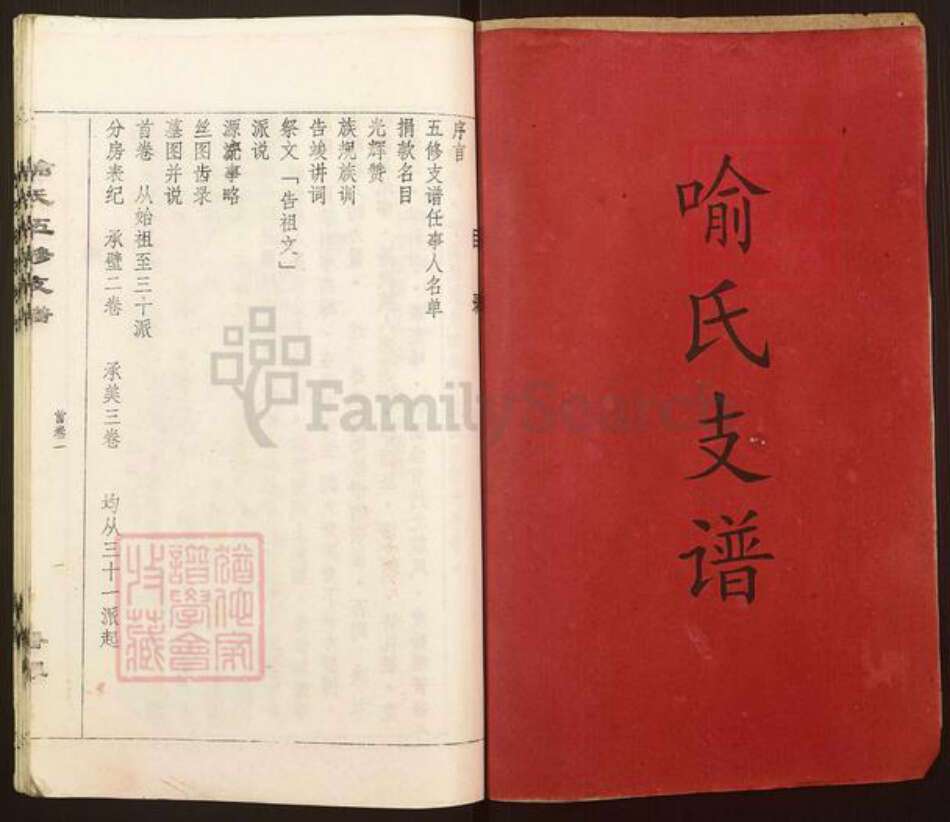 喻氏支谱
目录
序言
五修支谱任事人名单
捐款名目
光辉赞
族规族训
告竣讲词
祭文「告祖文」
派说
源流事略
丝图齿录
墓图并说
首卷 从始祖至三十派
分房表纪 承壁二卷 承美三卷 均从三十一派起
喻氏五修支谱
首卷一
一
犹他家
谱學會
收藏
FamilySearch